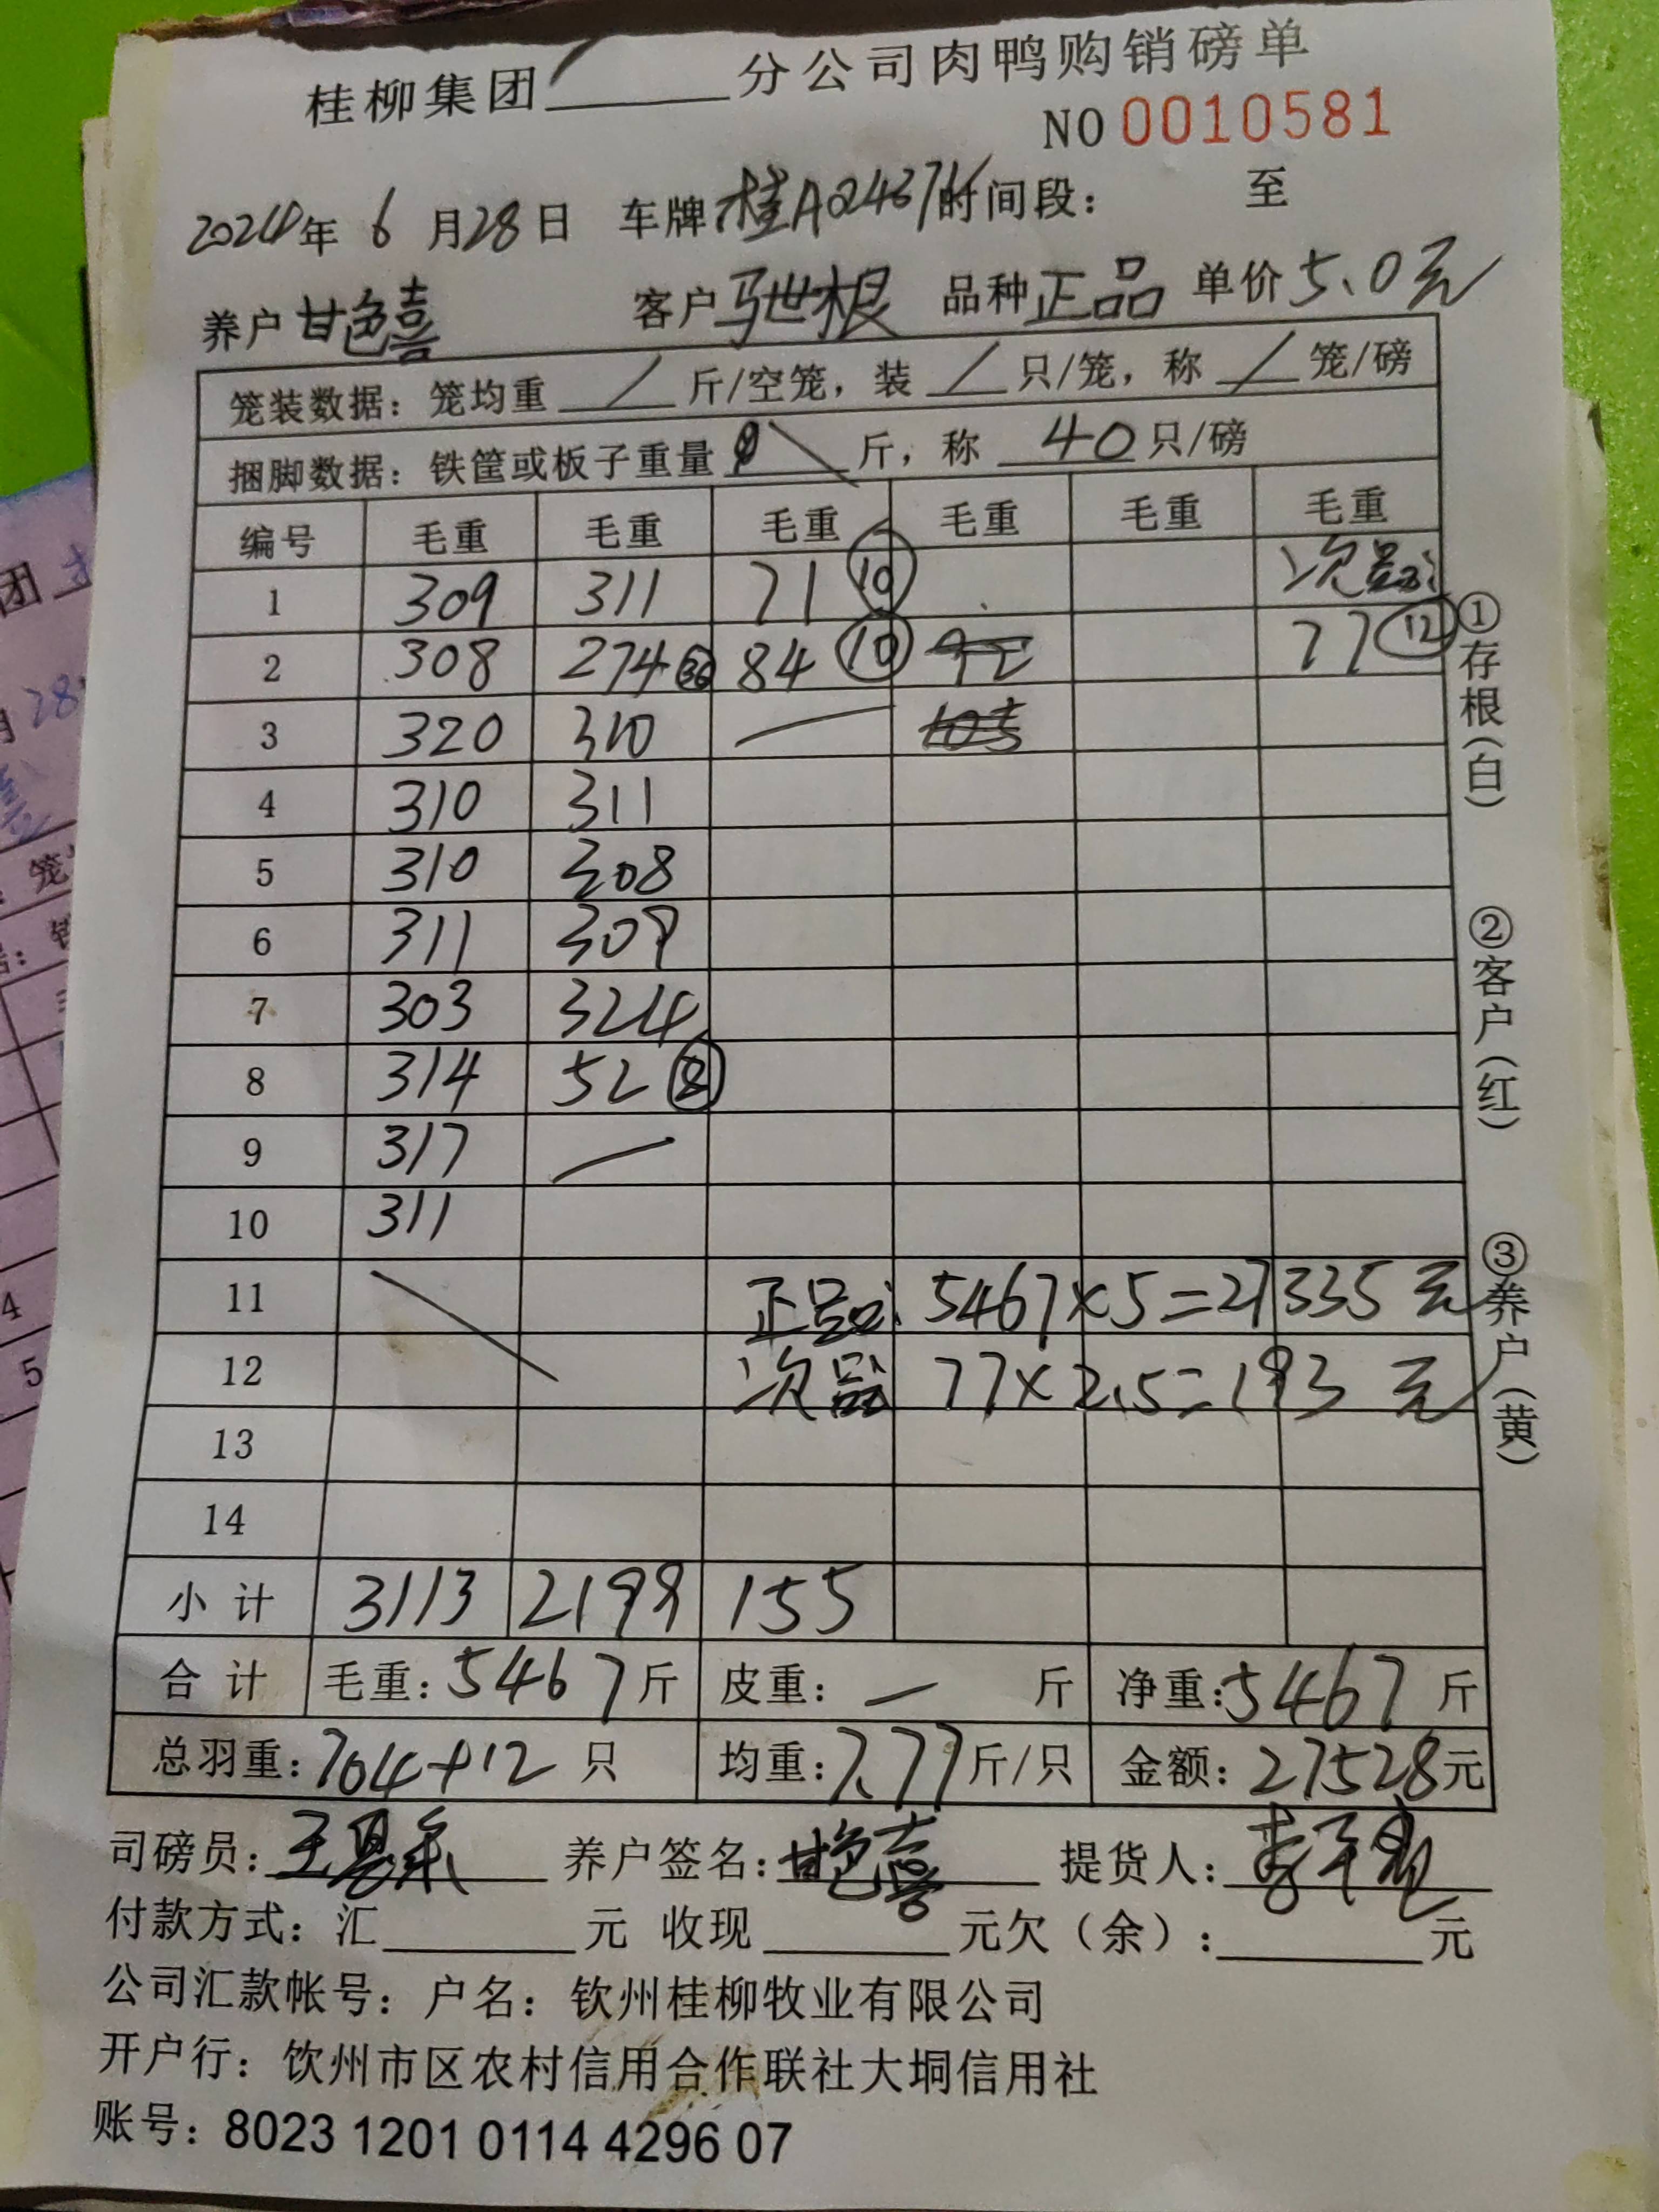 桂柳集团 / 分公司肉鸭购销磅单
NO 0010581
2024年 6 月28日 车牌桂A02437 时间段： 至
养户 甘色喜 客户 驰根 品种 正品 单价 5.0元
笼装数据：笼均重 / 斤/空笼，装 / 只/笼，称 / 笼/磅
捆脚数据：铁筐或板子重量 \ 斤，称 40 只/磅
编号 毛重 毛重 毛重 毛重 毛重 毛重
1 309 311 71 ⑩ 次品：
2 308 274 ㊱ 84 ⑩ 77 ⑫
3 320 310 —
4 310 311
5 310 308
6 311 309
7 303 324
8 314 52 ⑧
9 317 —
10 311
11 \ 正品：5467×5=27335 元
12 次品 77×2.5=193 元
13
14
小 计 3113 2199 155
合 计 毛重：5467 斤 皮重：— 斤 净重：5467 斤
总羽重：704+12 只 均重：7.77 斤/只 金额：27528元
司磅员： 养户签名：甘色喜 提货人：
付款方式：汇 元 收现 元欠（余）： 元
公司汇款帐号：户名：钦州桂柳牧业有限公司
开户行：饮州市区农村信用合作联社大垌信用社
账号：8023 1201 0114 4296 07
①存根（白）
②客户（红）
③养户（黄）